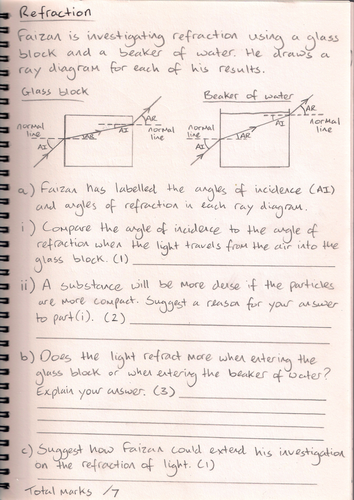 Refraction
Faizan is investigating refraction using a glass
block and a beaker of water. He draws a
ray diagram for each of his results.
Glass block
Beaker of water
normal line
AI
AR
AI
AR
normal line
normal line
AI
AR
AI
AR
normal line
a) Faizan has labelled the angles of incidence (AI)
and angles of refraction in each ray diagram.
i) Compare the angle of incidence to the angle of
refraction when the light travels from the air into the
glass block. (1)
ii) A substance will be more dense if the particles
are more compact. Suggest a reason for your answer
to part (i). (2)
b) Does the light refract more when entering the
glass block or when entering the beaker of water?
Explain your answer. (3)
c) Suggest how Faizan could extend his investigation
on the refraction of light. (1)
Total Marks /7